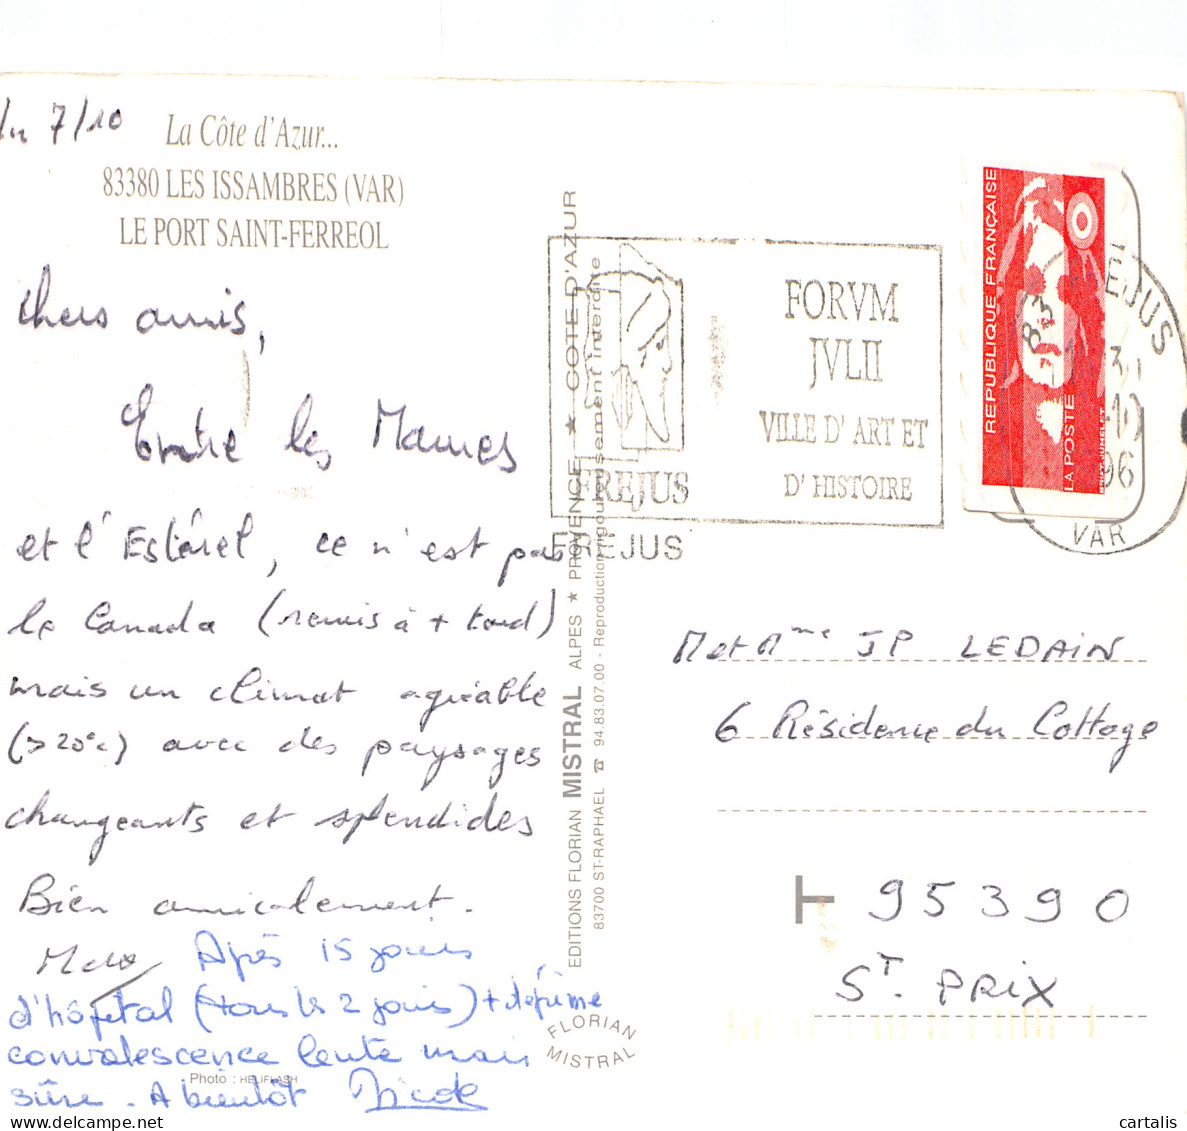 7/10
La Côte d'Azur...
83380 LES ISSAMBRES (VAR)
LE PORT SAINT-FERREOL
Chers amis,
Entre les Maures
et l'Estérel, ce n'est pas
le Canada (remis à + tard)
mais un climat agréable
(>20°c) avec des paysages
changeants et splendides
Bien amicalement.
Après 15 jours
d'hôpital (tous les 2 jours) + déprime
convalescence lente mais
sûre. A bientôt Nicole
Photo : HELIFLASH
EDITIONS FLORIAN MISTRAL ALPES ★ PROVENCE ★ COTE D'AZUR
83700 ST-RAPHAEL ☎ 94.83.07.00 - Reproduction rigoureusement interdite
FLORIAN
MISTRAL
FREJUS
FORVM
JVLII
VILLE D'ART ET
D'HISTOIRE
FREJUS
REPUBLIQUE FRANÇAISE
LA POSTE
83 FREJUS
96
VAR
M et Mme JP LEDAIN
6 Résidence du Cottage
95390
ST. PRIX
cartalis